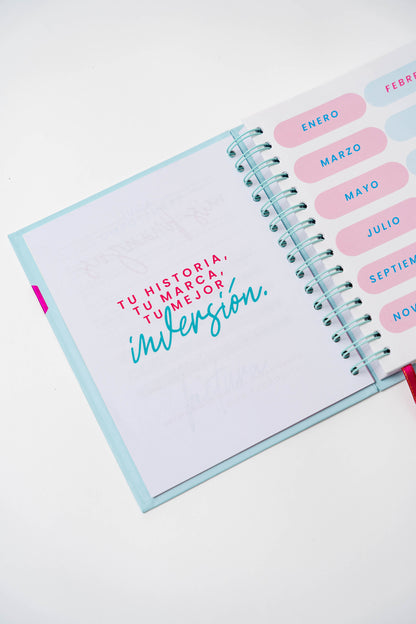 TU HISTORIA,
TU MARCA,
TU MEJOR
inversión.
ENERO
FEBRE
MARZO
MAYO
JULIO
SEPTIEM
NOV